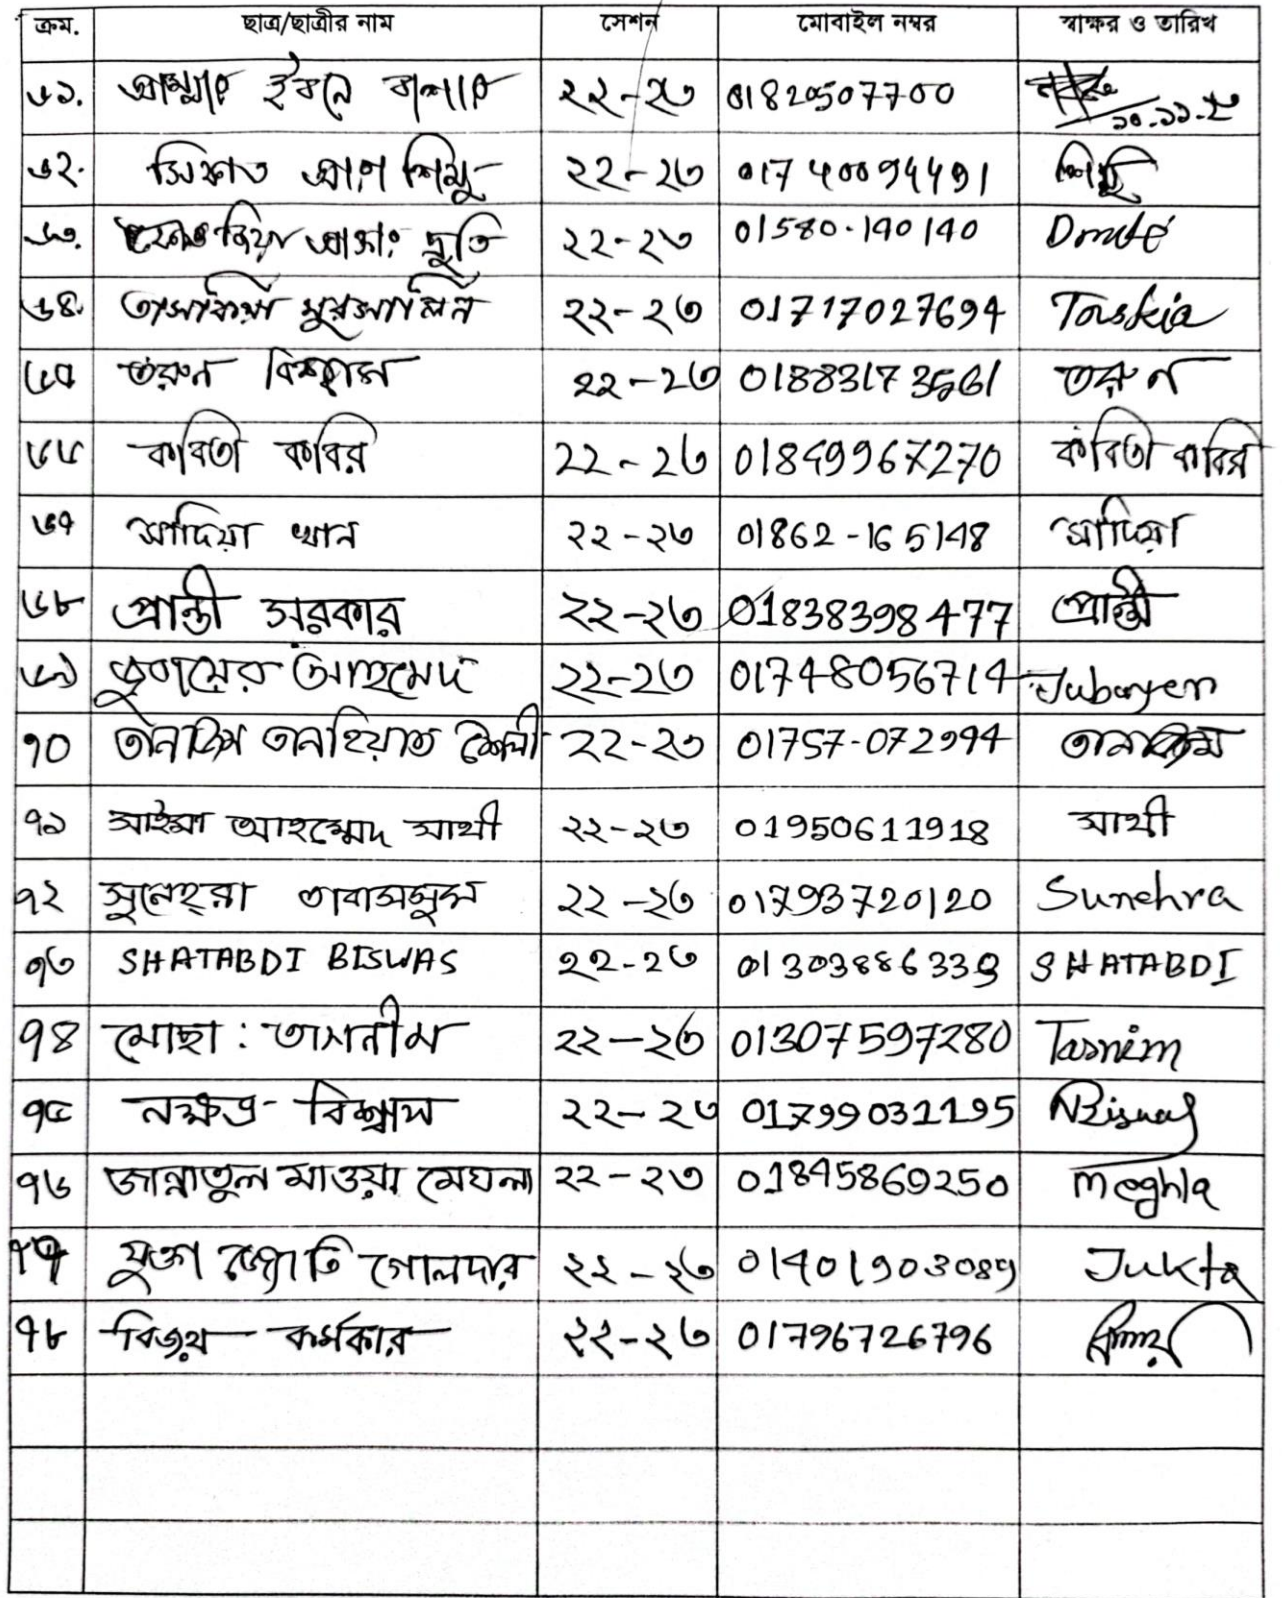 ক্রম. ছাত্র/ছাত্রীর নাম সেশন মোবাইল নম্বর স্বাক্ষর ও তারিখ
৬১. আম্মার ইবনে বাশার ২২-২৩ 01820507700 ১০.১১.২৫
৬২. সিফাত আরা শিমু ২২-২৩ 01740094491 শিমু
৬৩. দ্যুতি ২২-২৩ 01580-190190
৬৪. তাসকিয়া মুরসালিন ২২-২৩ 01717027694 Taskia
৬৫ তরুন বিশ্বাস ২২-২৩ 01883173561 তরুন
৬৬ কবিতা কবির ২২-২৩ 01849967270 কবিতা কবির
৬৭ সাদিয়া খান ২২-২৩ 01862-165148 সাদিয়া
৬৮ প্রান্তী সরকার ২২-২৩ 01838398477 প্রান্তী
৬৯ জুবায়ের আহমেদ ২২-২৩ 01748056714 Jubayer
৭০ তানজিম তানহিয়াত শৈলী ২২-২৩ 01757-072994 তানজিম
৭১ সাইমা আহম্মেদ সাথী ২২-২৩ 01950611918 সাথী
৭২ সুনেহ্রা তাবাসসুম ২২-২৩ 01793720120 Sunehra
৭৩ SHATABDI BISWAS ২২-২৩ 01303886339 SHATABDI
৭৪ মোছা: তাসনীম ২২-২৩ 01307597280 Tasnim
৭৫ নক্ষত্র বিশ্বাস ২২-২৩ 01799031195 NBiswas
৭৬ জান্নাতুল মাওয়া মেঘলা ২২-২৩ 01845869250 Meghla
৭৭ যুক্তা জ্যোতি গোলদার ২২-২৩ 01401903089 Jukta
৭৮ বিজয় কর্মকার ২২-২৩ 01796726796 বিজয়